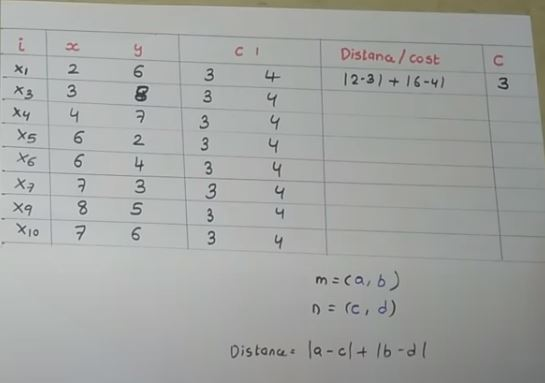 i x y C 1 Distana/cost C
x1 2 6 3 4 |2-3| + |6-4| 3
x3 3 8 3 4
x4 4 7 3 4
x5 6 2 3 4
x6 6 4 3 4
x7 7 3 3 4
x9 8 5 3 4
x10 7 6 3 4
m = (a, b)
n = (c, d)
Distance = |a-c| + |b-d|